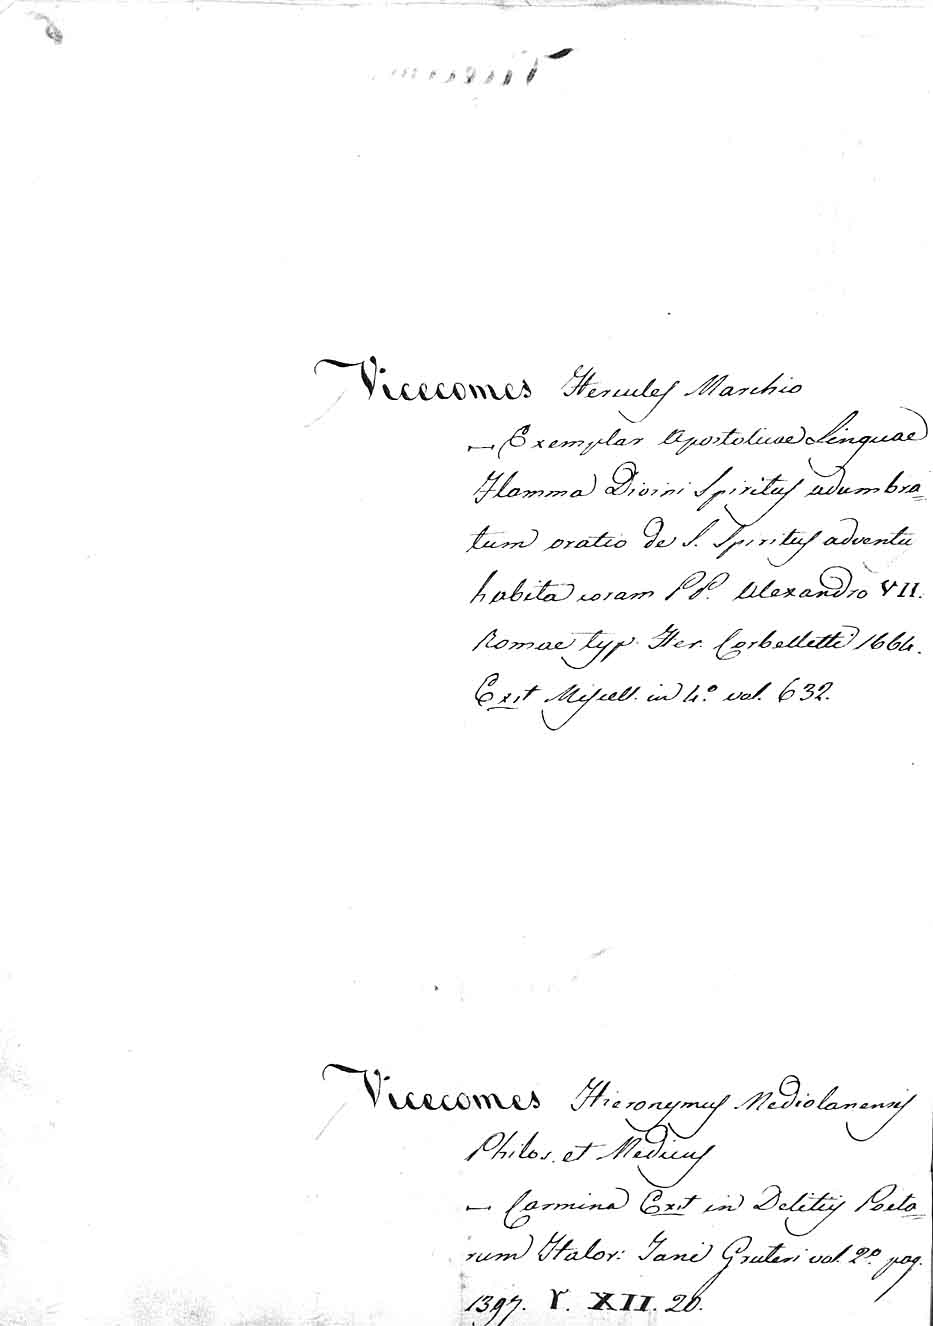 Vicecomes Hercules Marchio
— Exemplar Apostolicae Linguae
Flamma Divini Spiritus adumbra=
tum oratio de S. Spiritus adventu
habita coram PP. Alexandro VII.
Romae typ. Her. Corbelletti 1664.
Exit Miscell. in 4.° vol. 632.
Vicecomes Hieronymus Mediolanensis
Philos. et Medicus
— Carmina Exit in Delitiis Poeta=
rum Italor: Jani Gruteri vol. 2.° pag.
1397. Y. XII. 20.